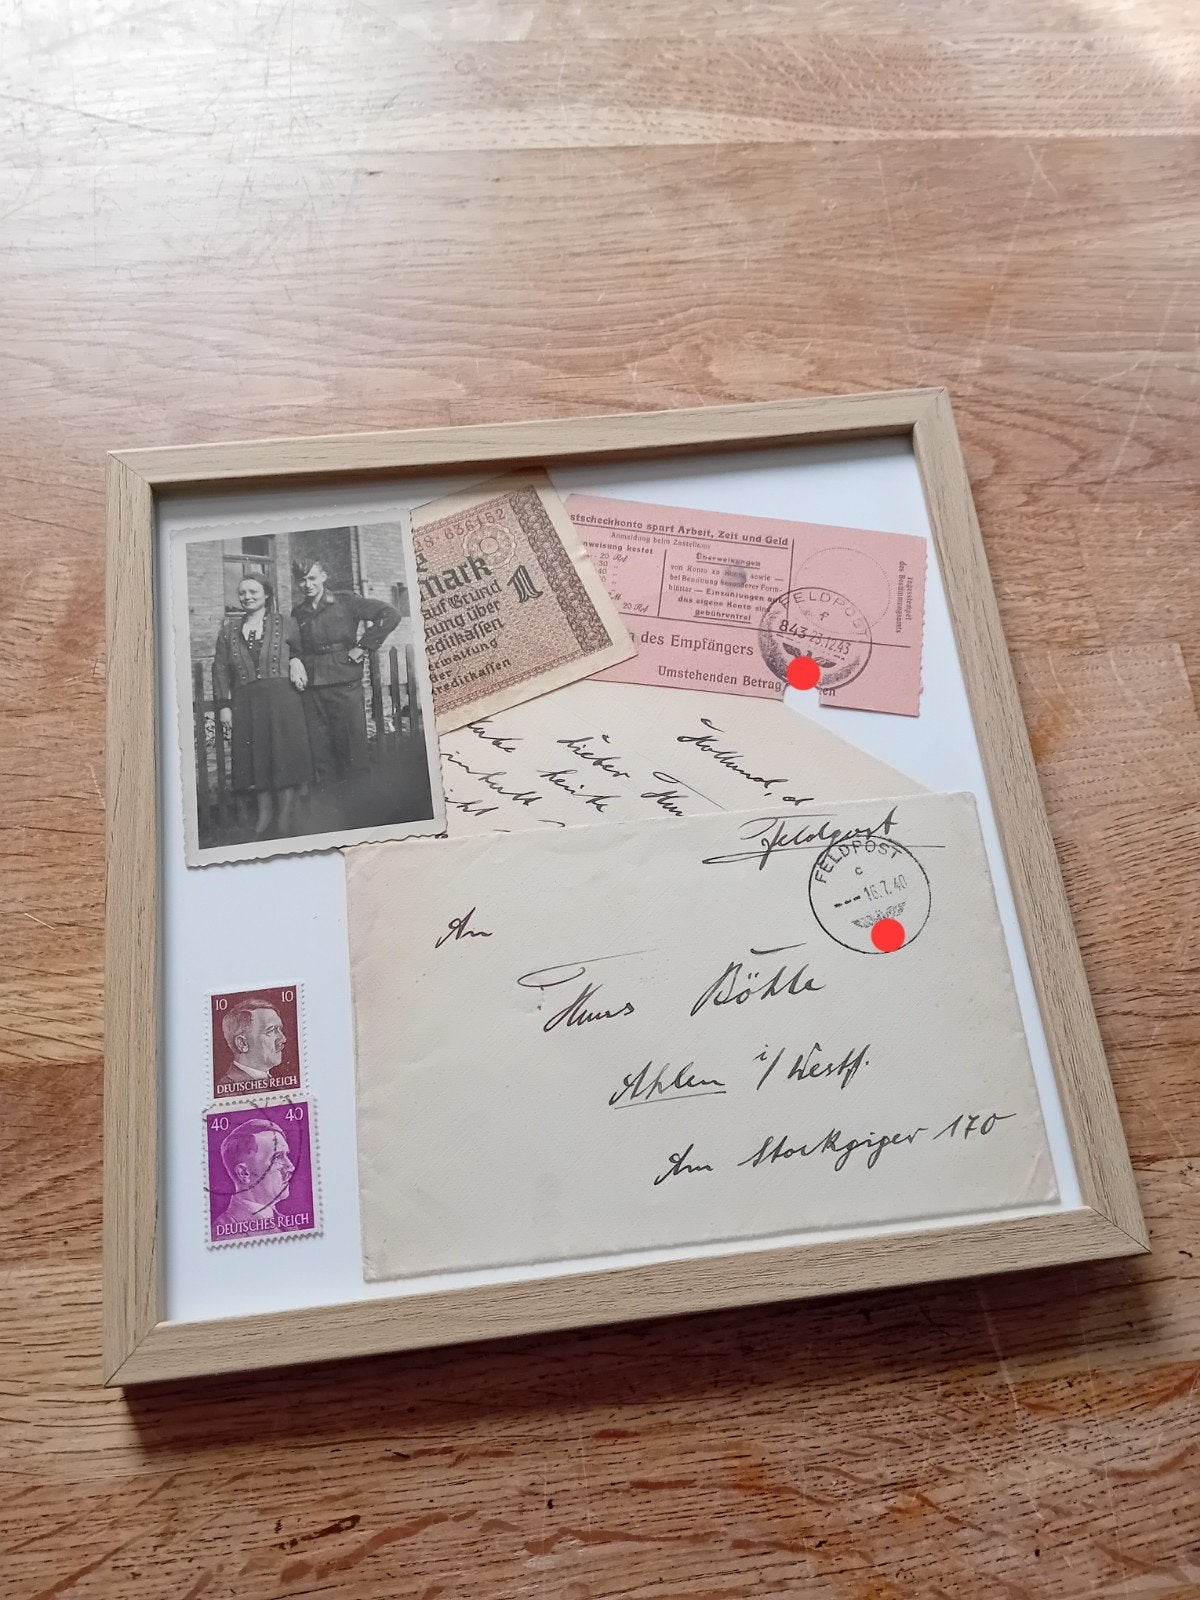 08·636152
mark 1
auf Grund
nung über
reditkassen
erwaltung
der
kreditkassen
stscheckkonto spart Arbeit, Zeit und Geld
Anmeldung beim Zustellamt
weisung kostet
20 Rpf
30
40
20 Rpf
Überweisungen
von Konto zu sowie —
bei Benutzung besonderer Form-
blätter — Einzahlungen auf
das eigene Konto sind
gebührenfrei
des Empfängers
Umstehenden Betrag
en
FELDPOST
f
843 23.12.43
des Bestimmungsamts
Holland, d
Lieber
heute
Feldpost
FELDPOST
c
--- 16.7.40
An
Hans Böhle
Ahlen i/Westf.
Am Stockpieper 170
10 10
DEUTSCHES REICH
40 40
DEUTSCHES REICH